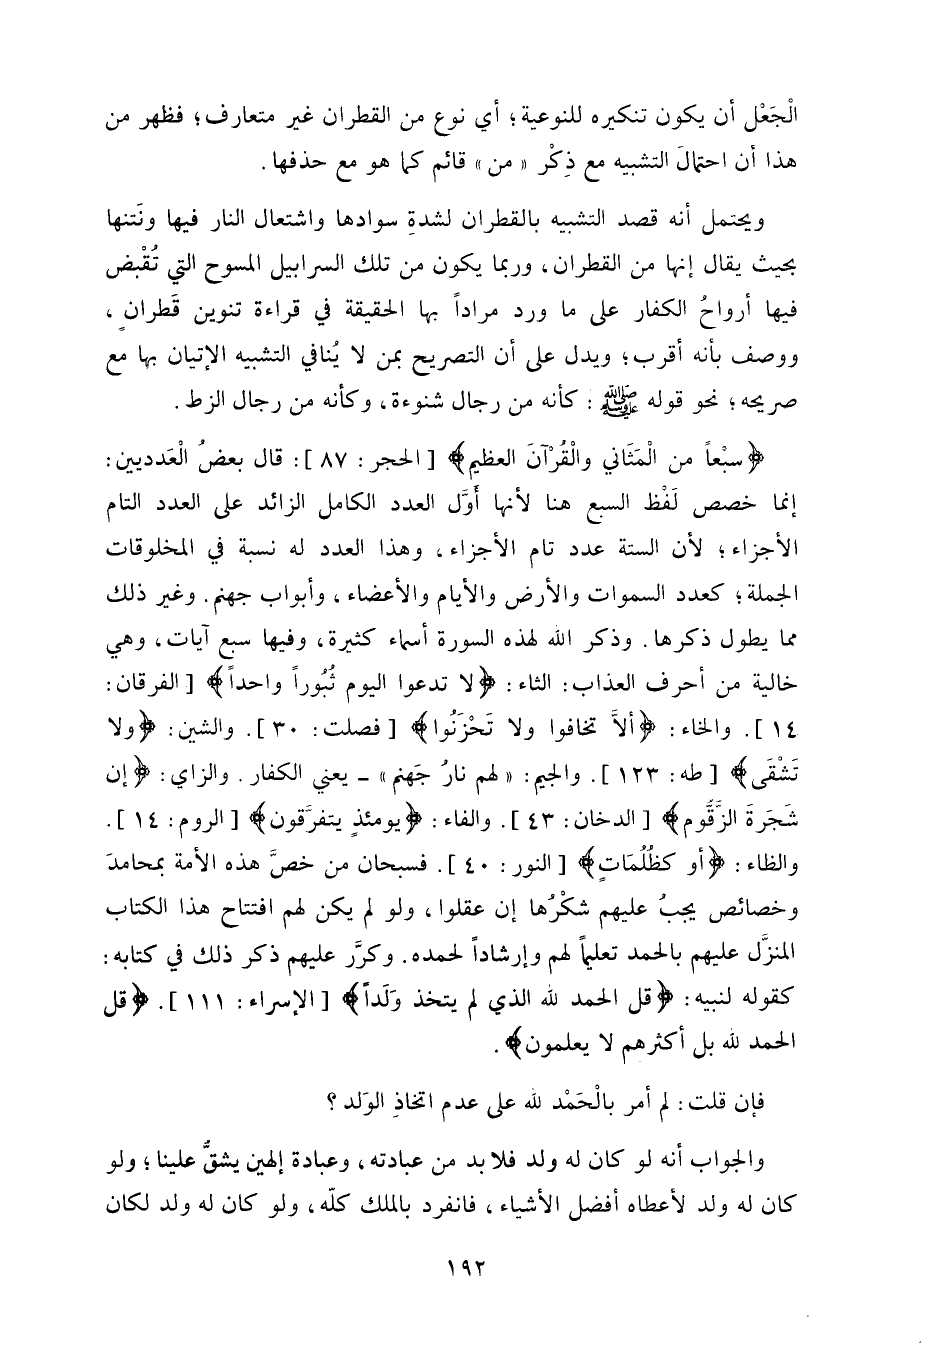 الْجَعْل أن يكون تنكيره للنوعية؛ أي نوع من القطران غير متعارف؛ فظهر من
هذا أن احتمالَ التشبيه مع ذِكْر «من» قائم كما هو مع حذفها.
ويحتمل أنه قصد التشبيه بالقطران لشدةِ سوادها واشتعال النار فيها ونَتنها
بحيث يقال إنها من القطران، وربما يكون من تلك السرابيل المسوح التي تُقْبض
فيها أرواحُ الكفار على ما ورد مراداً بها الحقيقة في قراءة تنوين قَطرانٍ،
ووصف بأنه أقرب؛ ويدل على أن التصريح بمن لا يُنافي التشبيه الإتيان بها مع
صريحه؛ نحو قوله ﷺ: كأنه من رجال شنوءة، وكأنه من رجال الزط.
﴿سبْعاً من الْمَثَاني والْقُرْآنَ العظيم﴾ [الحجر: ٨٧]: قال بعضُ الْعَدديين:
إنما خصص لَفْظ السبع هنا لأنها أَوَّل العدد الكامل الزائد على العدد التام
الأجزاء؛ لأن الستة عدد تام الأجزاء، وهذا العدد له نسبة في المخلوقات
الجملة؛ كعدد السموات والأرض والأيام والأعضاء، وأبواب جهنم. وغير ذلك
مما يطول ذكرها. وذكر الله لهذه السورة أسماء كثيرة، وفيها سبع آيات، وهي
خالية من أحرف العذاب: الثاء: ﴿لا تدعوا اليوم ثُبُوراً واحداً﴾ [الفرقان:
١٤]. والخاء: ﴿ألاَّ تخافوا ولا تَحْزَنُوا﴾ [فصلت: ٣٠]. والشين: ﴿ولا
تَشْقَى﴾ [طه: ١٢٣]. والجيم: «لهم نارُ جَهنم» ـ يعني الكفار. والزاي: ﴿إن
شَجَرَةَ الزَّقُّوم﴾ [الدخان: ٤٣]. والفاء: ﴿يومئذٍ يتفرَّقون﴾ [الروم: ١٤].
والظاء: ﴿أو كظُلُمَاتٍ﴾ [النور: ٤٠]. فسبحان من خصَّ هذه الأمة بمحامدَ
وخصائص يجبُ عليهم شكْرُها إن عقلوا، ولو لم يكن لهم افتتاح هذا الكتاب
المنزَّل عليهم بالحمد تعليماً لهم وإرشاداً لحمده. وكرَّر عليهم ذكر ذلك في كتابه:
كقوله لنبيه: ﴿قل الحمد لله الذي لم يتخذ وَلَداً﴾ [الإسراء: ١١١]. ﴿قل
الحمد لله بل أكثرهم لا يعلمون﴾.
فإن قلت: لم أمر بالْحَمْد لله على عدم اتخاذِ الوَلد؟
والجواب أنه لو كان له ولد فلا بد من عبادته، وعبادة إلهين يشقُّ علينا؛ ولو
كان له ولد لأعطاه أفضل الأشياء، فانفرد بالملك كلّه، ولو كان له ولد لكان
١٩٢